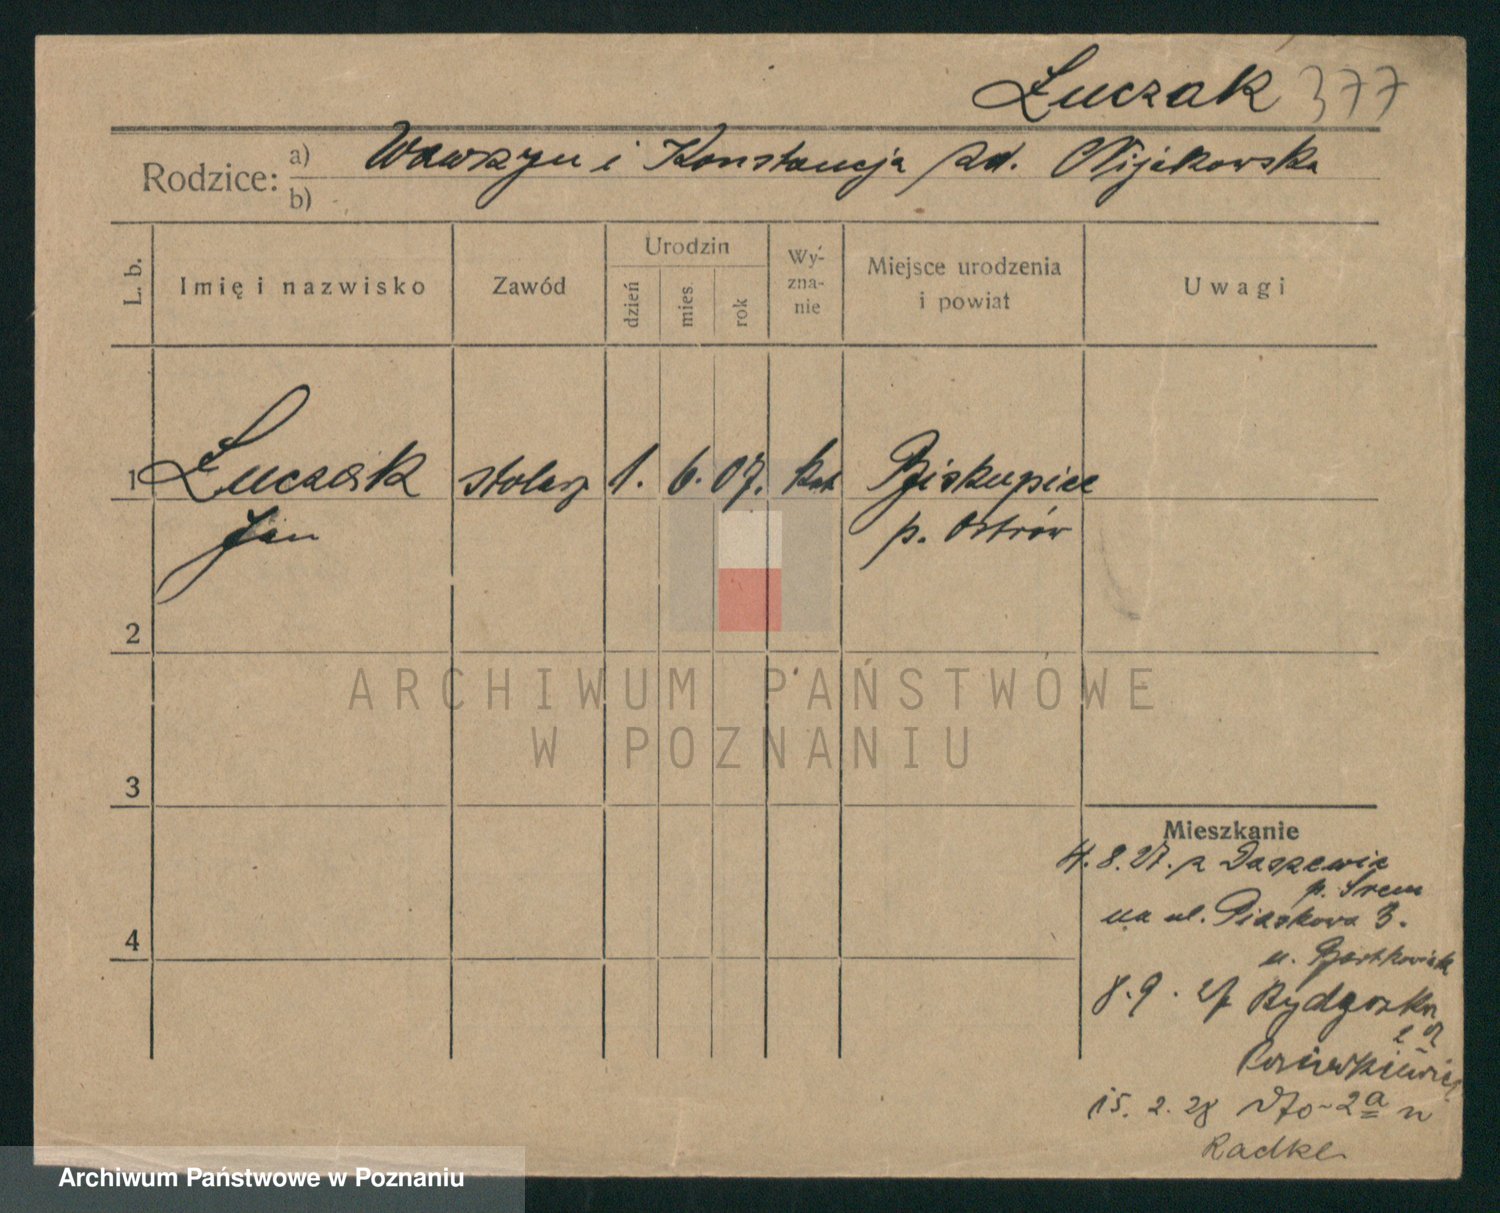 Łuczak 377
Rodzice: a) Wawrzyn i Konstancja zd. Nijakowska
b)
L. b.
Imię i nazwisko
Zawód
Urodzin
dzień
mies.
rok
Wy-
zna-
nie
Miejsce urodzenia
i powiat
Uwagi
1 Łuczak stolarz 1. 6. 07. kat Biskupice
Jan p. Ostrów
2
ARCHIWUM PAŃSTWOWE
W POZNANIU
3
Mieszkanie
4. 8. 27. z Daszewic
p. Śrem
na ul. Piaskowa 3.
4
u. Bartkowiak
8. 9. 27 Bydgoska
15. 2. 28 dto - 2a u
Radke
Archiwum Państwowe w Poznaniu